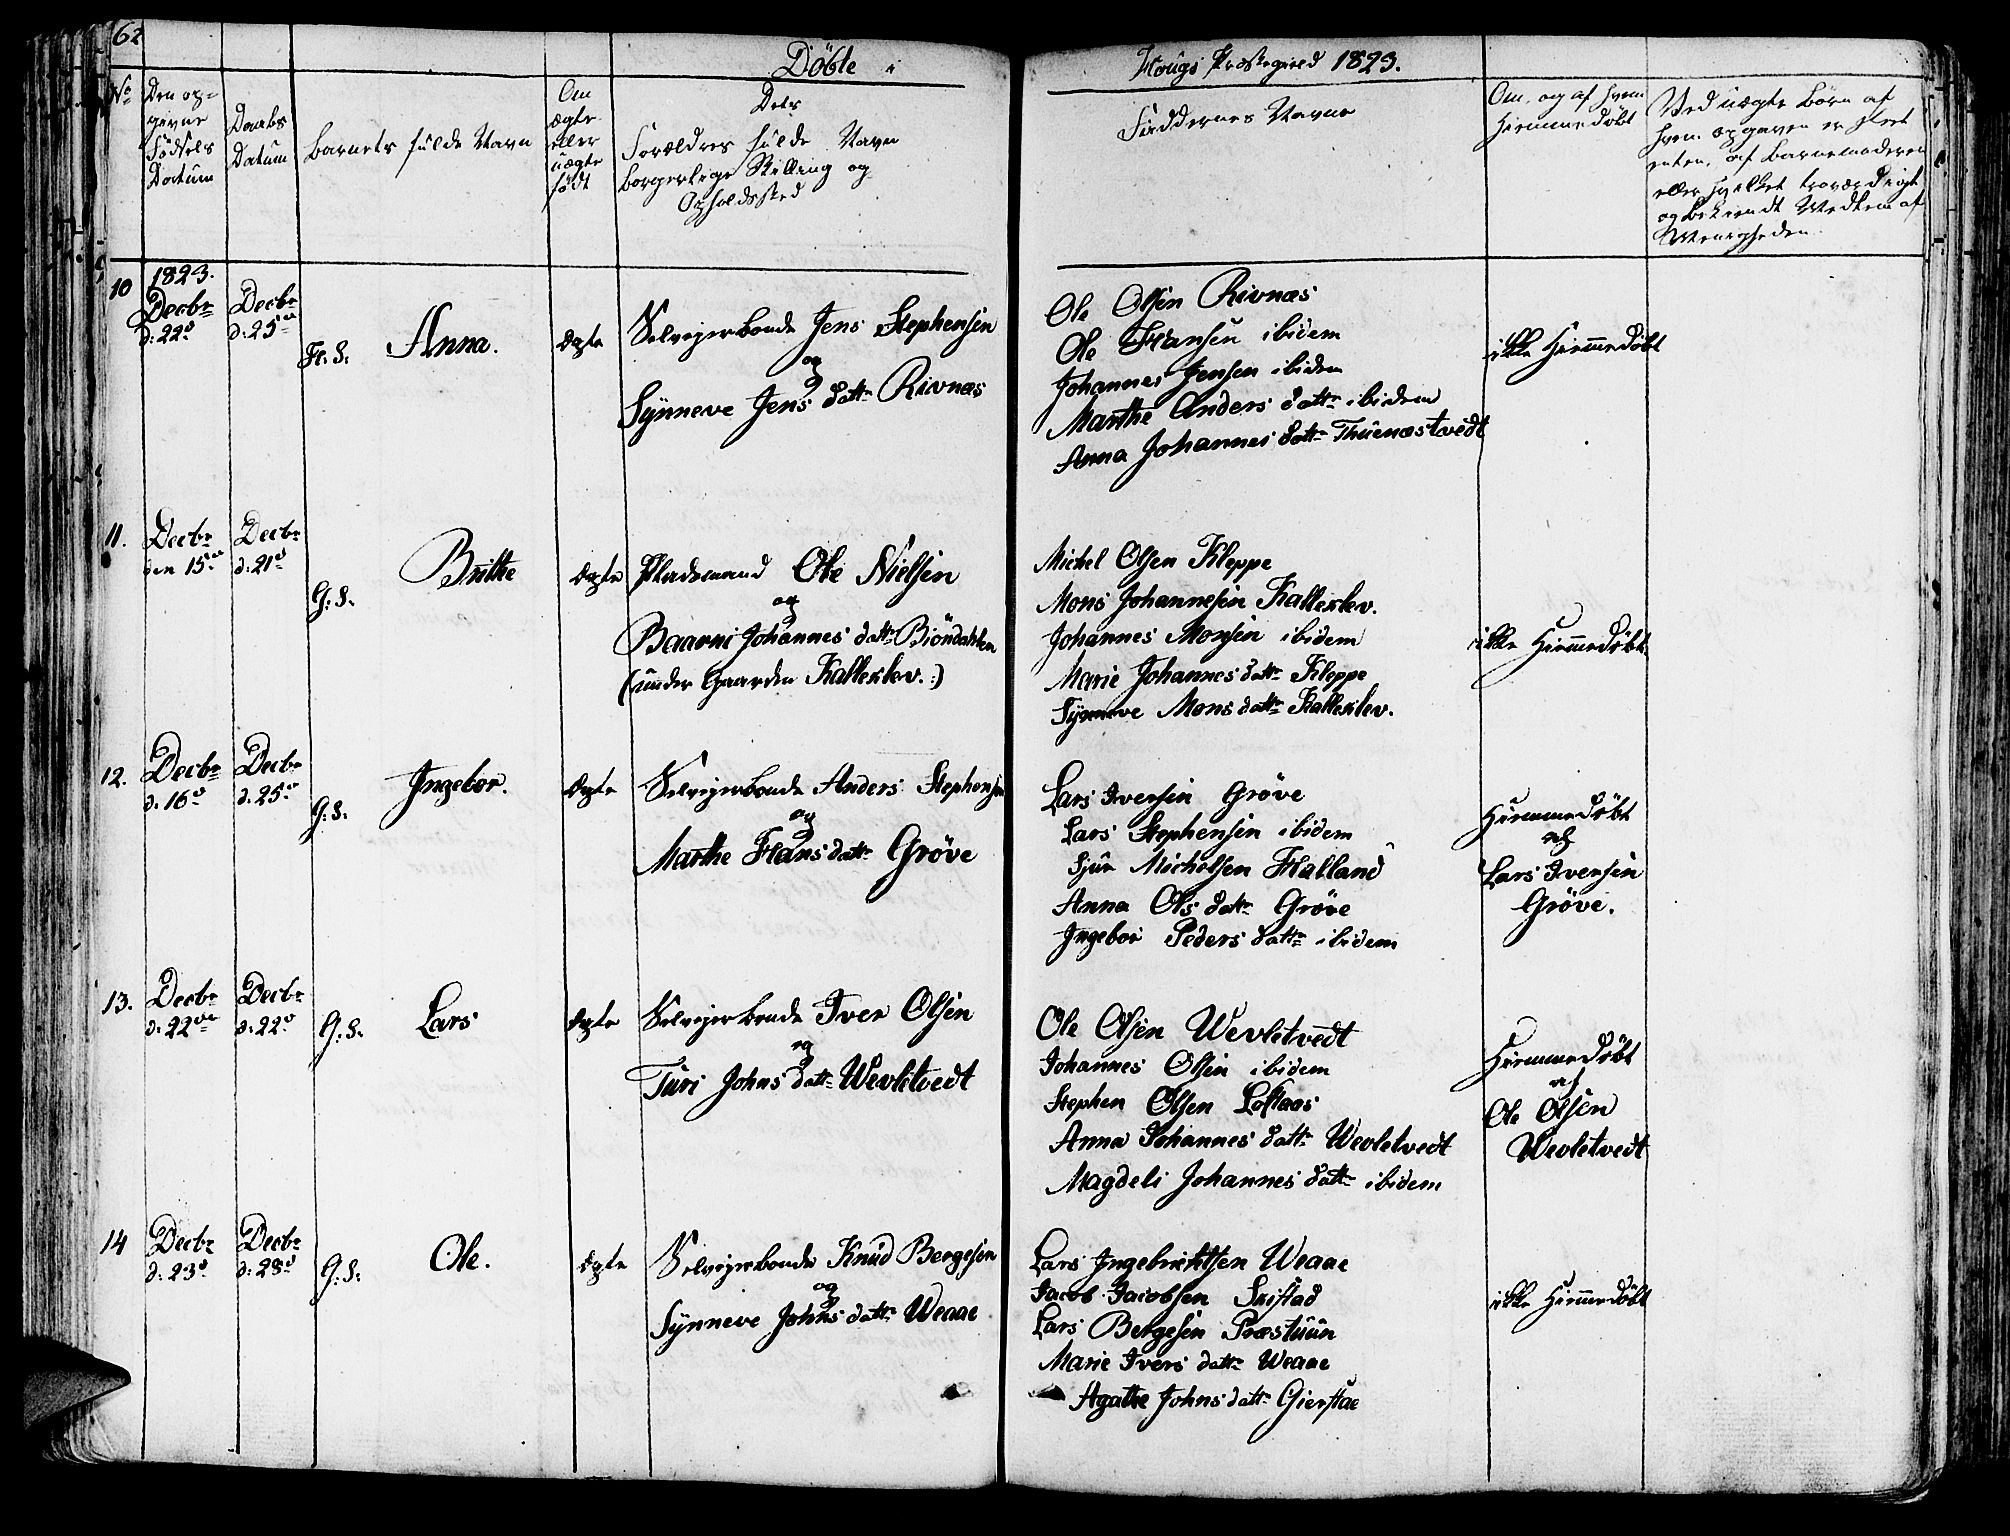 62
Döbte i Hougs Præstegield 1823.
No
Den op=
givne
Födsels
Datum
Daabs
Datum
Barnets fulde Navn
Om
ægte
eller
uægte
födt
Dets
Forældres fulde Navn
borgerlige Stilling og
Opholdssted
Faddernes Navne
Om, og af hvem
Hiemmedöbt
Ved uægte Börn af
hvem opgaven er skeet
enten, af Barnemoderen
eller hvilket troværdigt
og bekiendt Medlem af
Menigheden.
10
1823.
Decbr
d: 22d
Decbr
d: 25de
H: S:
Anna.
ægte
Selveierbonde Jens Stephensen
og
Synneve Jens datr Rivnæs
Ole Olsen Rivnæs
Ole Hansen ibidem
Johannes Jensen ibidem
Marthe Anders datr ibidem
Anna Johannes datr Thuenæstvedt
ikke Hiemmedöbt
11.
Decbr
den 15de
Decbr
d: 21d
G: S:
Brithe
ægte
Pladsmand Ole Nielsen
og
Baarni Johannes datr Biöndahlen
(under Gaarden Kalleklev.:)
Michel Olsen Kleppe
Mons Johannesen Kalleklev.
Johannes Monsen ibidem
Marie Johannes datr Kleppe
Synneve Mons datr Kalleklev.
ikke Hiemmedöbt.
12.
Decbr
d: 16d
Decbr
d: 25d
G: S:
Ingebor.
ægte
Selveierbonde Anders Stephensen
og
Marthe Hans datr Gröve
Lars Iversen Gröve
Lars Stephensen ibidem
Sjur Michelsen Halland
Anna Ols datr Gröve
Ingebor Peders datr ibidem
Hiemmedöbt
af
Lars Iversen
Gröve.
13.
Decbr
d: 22de
Decbr
d: 22d
G: S:
Lars
ægte
Selveierbonde Iver Olsen
og
Turi Johns datr Wevletvedt
Ole Olsen Wevletvedt
Johannes Olsen ibidem
Stephen Olsen Loftaas
Anna Johannes datr Wevletvedt
Magdeli Johannes datr ibidem
Hiemmedöbt
af
Ole Olsen
Wevletvedt
14
Decbr
d: 23d
Decbr
d: 28d
G: S:
Ole.
ægte
Selveierbonde Knud Bergesen
og
Synneve Johns datr Weaae
Lars Ingebrichtsen Weaae
Jacob Jacobsen Skistad
Lars Bergesen Præstuun
Marie Ivers datr Weaae
Agathe Johns datr Gierstae
ikke Hiemmedöbt